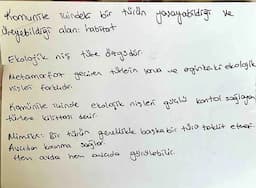 Komünite içindeki bir türün yaşayabildiği ve
üreyebildiği alan: habitat
Ekolojik niş türe özgüdür.
Metamorfoz geçiren türlerin larva ve erginlerinin ekolojik
nişleri farklıdır.
Komünite içinde ekolojik nişleri güçlü kontrol sağlayan
türlere kilittaşı denir.
Mimikri: Bir türün genellikle başka bir türü taklit etmesi.
Avcıdan korunma sağlar.
Hem avda hem avcıda görülebilir.